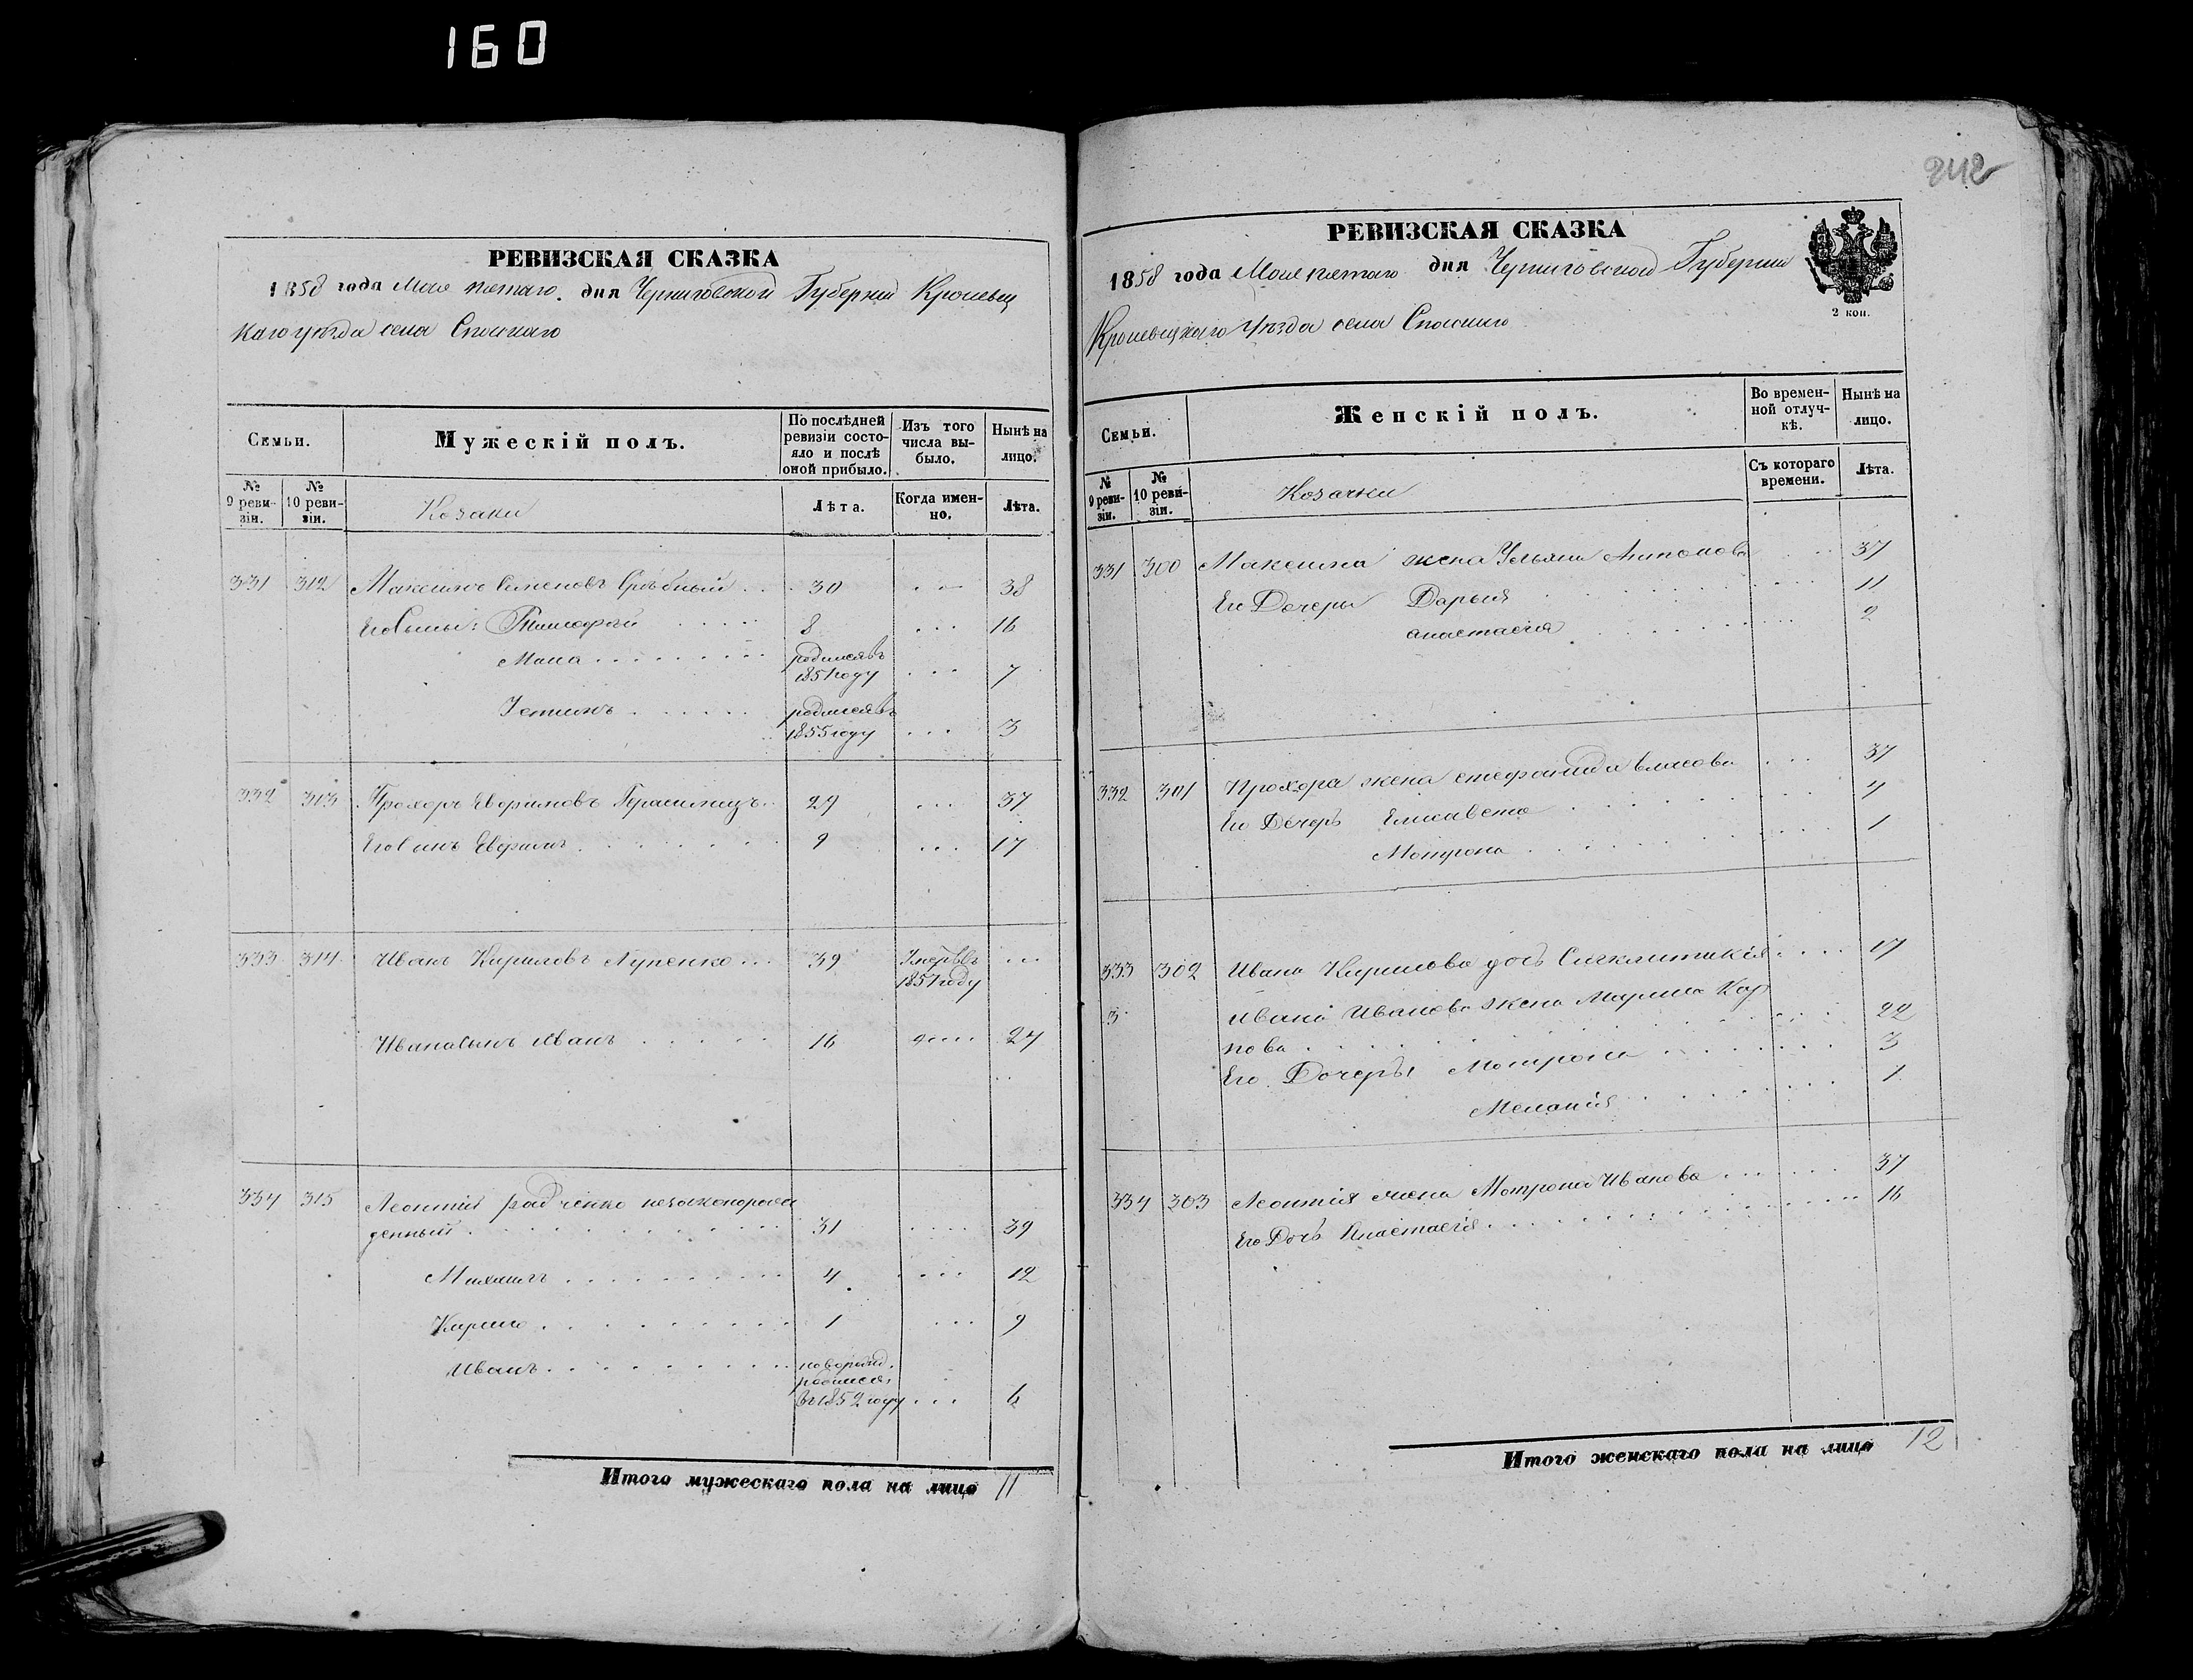 160
242
РЕВИЗСКАЯ СКАЗКА
1858 года Мая пятаго дня Черниговской Губерніи Кролевец
каго уѣзда села Спаскаго
Семьи.
Мужескій полъ.
По послѣдней ревизіи состояло и послѣ оной прибыло.
Изъ того числа выбыло.
Нынѣ на лицо.
№ 9 ревизіи.
№ 10 ревизіи.
Козаки
Лѣта.
Когда именно.
Лѣта.
331 312 Максимъ Семеновъ 30 38
Его Сыны: Тимофей 8 16
родился въ 1851 году 7
Устинъ родился въ 1855 году 3
332 313 Прохоръ Евфимовъ Герасимецъ 29 37
Его Сынъ Евфимъ 9 17
333 314 Иванъ Кириловъ Лупенко 39 Умеръ въ 1851 году
Ивана Сынъ Иванъ 16 24
334 315 Леонтій Радченко незаконорож
денный 31 39
Михаилъ 4 12
Кирило 1 9
Иванъ новорожд. родился въ 1852 году 6
Итого мужескаго пола на лицо 11
РЕВИЗСКАЯ СКАЗКА
1858 года Мая пятаго дня Черниговской Губерніи
Кролевецкаго уѣзда села Спаскаго
2 коп.
Семьи.
Женскій полъ.
Во временной отлучкѣ.
Нынѣ на лицо.
№ 9 ревизіи.
№ 10 ревизіи.
Козачки
Съ котораго времени.
Лѣта.
331 300 Максима жена Ульяна Антонова 37
Его Дочери Дарья 11
Анастасія 2
332 301 Прохора жена Стефанида Власова 37
Его Дочерь Елисавета 4
Мотрона 1
333 302 Ивана Кирилова дочь Сигклитикія 17
3 Ивана Иванова жена Марина Кар
пова 22
Его Дочеры Мотрона 3
Меланія 1
334 303 Леонтія жена Мотрона Иванова 37
Его Дочь Анастасія 16
Итого женскаго пола на лицо 12